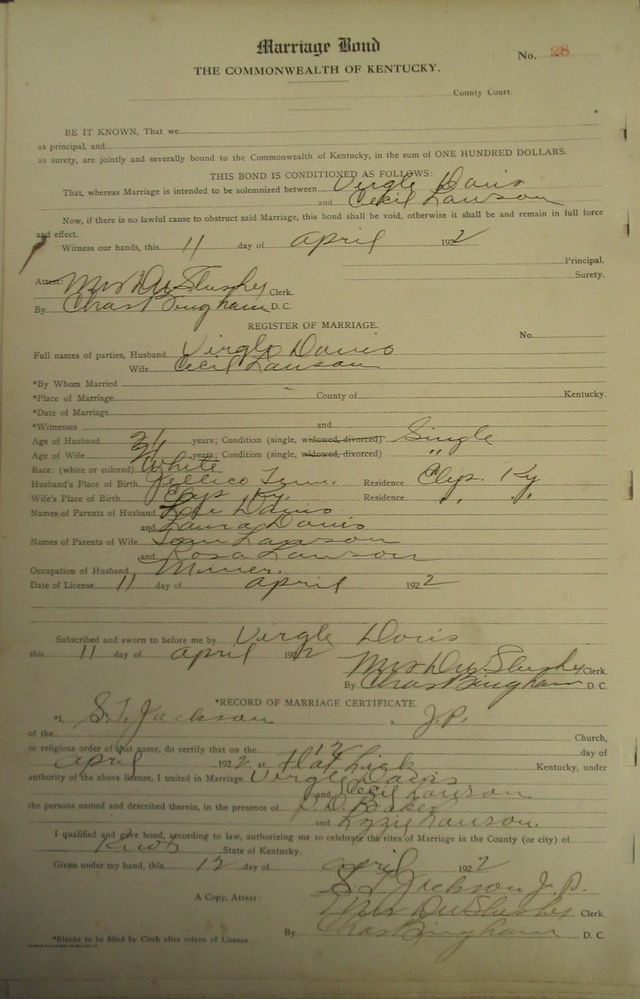 Marriage Bond
No. 28
THE COMMONWEALTH OF KENTUCKY.
County Court.
BE IT KNOWN, That we
as principal, and
as surety, are jointly and severally bound to the Commonwealth of Kentucky, in the sum of ONE HUNDRED DOLLARS.
THIS BOND IS CONDITIONED AS FOLLOWS:
That, whereas Marriage is intended to be solemnized between Virgle Davis
and Cecil Lawson
Now, if there is no lawful cause to obstruct said Marriage, this bond shall be void, otherwise it shall be and remain in full force
and effect.
Witness our hands, this 11 day of April 1922
Principal.
Surety.
Attest: Mrs D W Slusher Clerk.
By Chas Bingham D. C.
REGISTER OF MARRIAGE.
No.
Full names of parties, Husband Virgle Davis
Wife Cecil Lawson
*By Whom Married
*Place of Marriage County of Kentucky.
*Date of Marriage
*Witnesses and
Age of Husband 21 years; Condition (single, widowed, divorced) Single
Age of Wife years; Condition (single, widowed, divorced) "
Race: (white or colored) White
Husband's Place of Birth Jellico Tenn. Residence Ky
Wife's Place of Birth Ky. Residence " "
Names of Parents of Husband Davis
and Laura Davis
Names of Parents of Wife Tom Lawson
and Rosa Lawson
Occupation of Husband Miner.
Date of License 11 day of April 1922
Subscribed and sworn to before me by Virgle Davis
this 11 day of April 1922
Mrs D W Slusher Clerk.
By Chas Bingham D. C.
*RECORD OF MARRIAGE CERTIFICATE.
*I, S. T. Jackson a J. P.
of the Church,
or religious order of that name, do certify that on the 12 day of
April 1922 at Flat Lick Kentucky, under
authority of the above license, I united in Marriage Virgle Davis
and Cecil Lawson
the persons named and described therein, in the presence of D. Baker
and Lizzie Lawson.
I qualified and gave bond, according to law, authorizing me to celebrate the rites of Marriage in the County (or city) of
Knox State of Kentucky.
Given under my hand, this 12 day of April 1922
S. T. Jackson J. P.
A Copy, Attest: Mrs D W Slusher Clerk.
By Chas Bingham D. C.
*Blanks to be filled by Clerk after return of License.